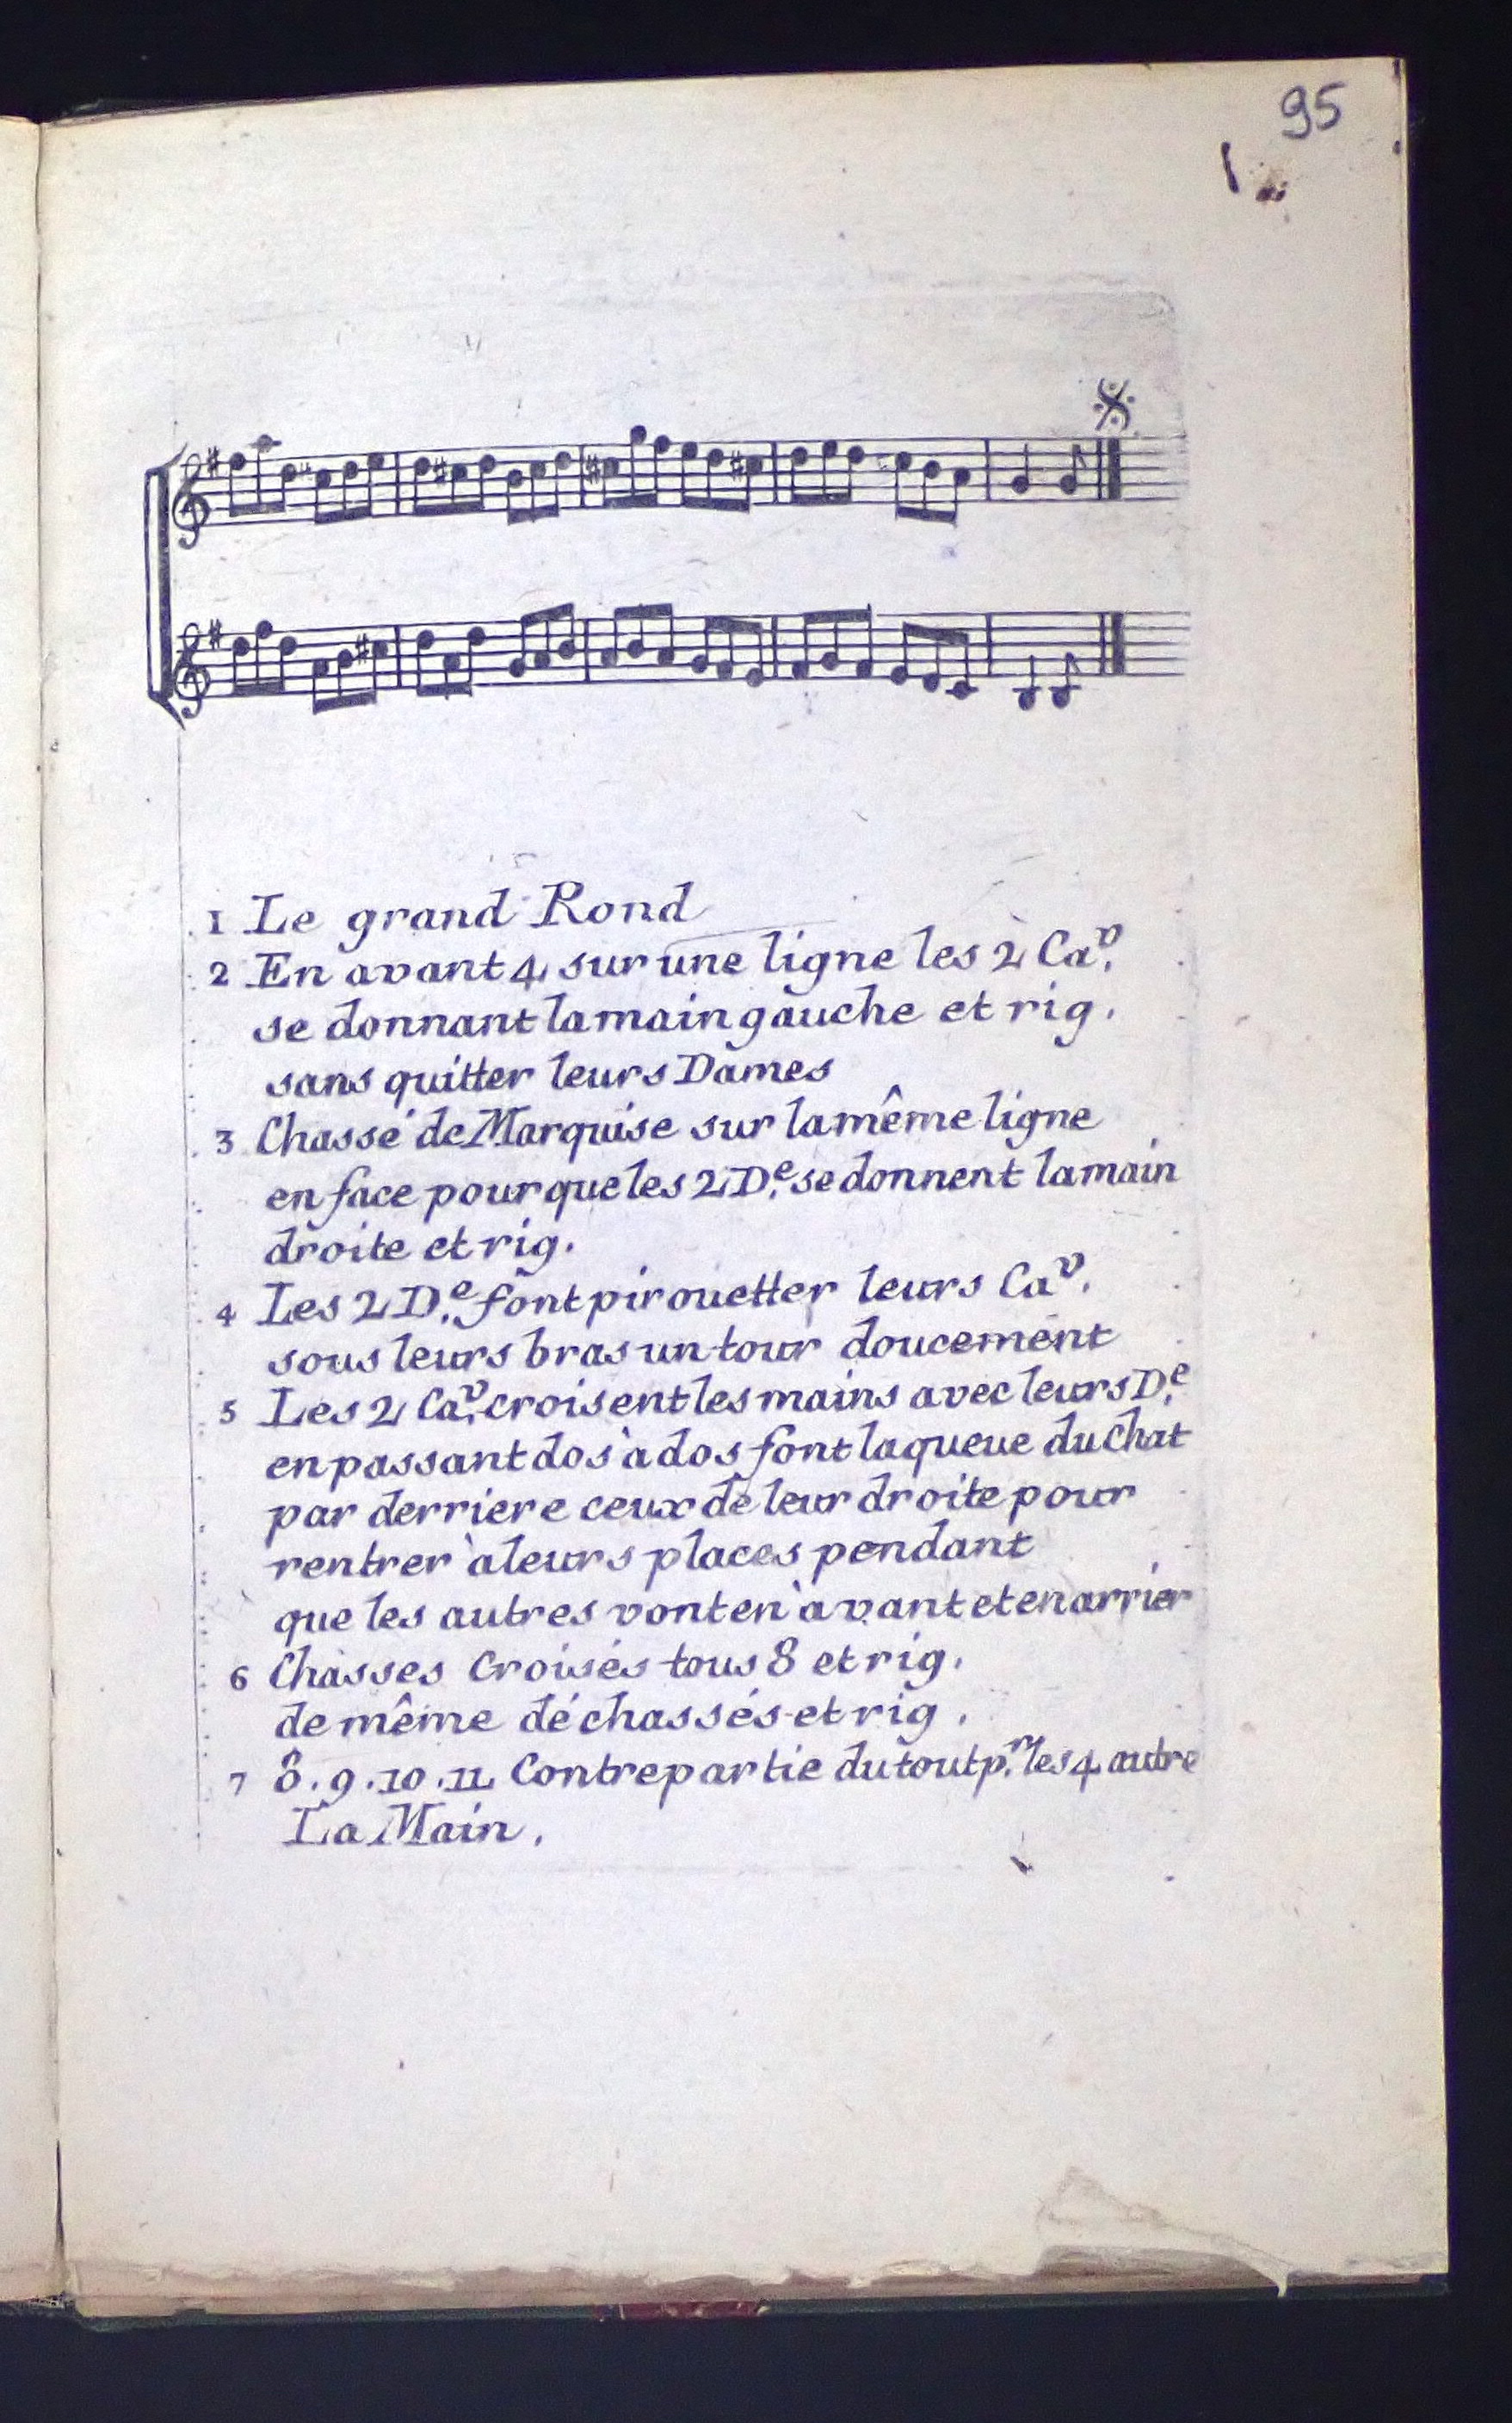 95
1 Le grand Rond
2 En avant 4 sur une ligne les 2 Cav.
se donnant la main gauche et rig.
sans quitter leurs Dames
3 Chassé de Marquise sur la même ligne
en face pour que les 2 De. se donnent la main
droite et rig.
4 Les 2 De. font pirouetter leurs Cav.
sous leurs bras un tour doucement
5 Les 2 Cav. croisent les mains avec leurs De.
en passant dos à dos font la queue du Chat
par derriere ceux de leur droite pour
rentrer à leurs places pendant
que les autres vont en avant et en arrier
6 Chasses Croisés tous 8 et rig.
de même déchassés et rig.
7 8. 9. 10. 11 Contrepartie du tout pr. les 4 autre
La Main.